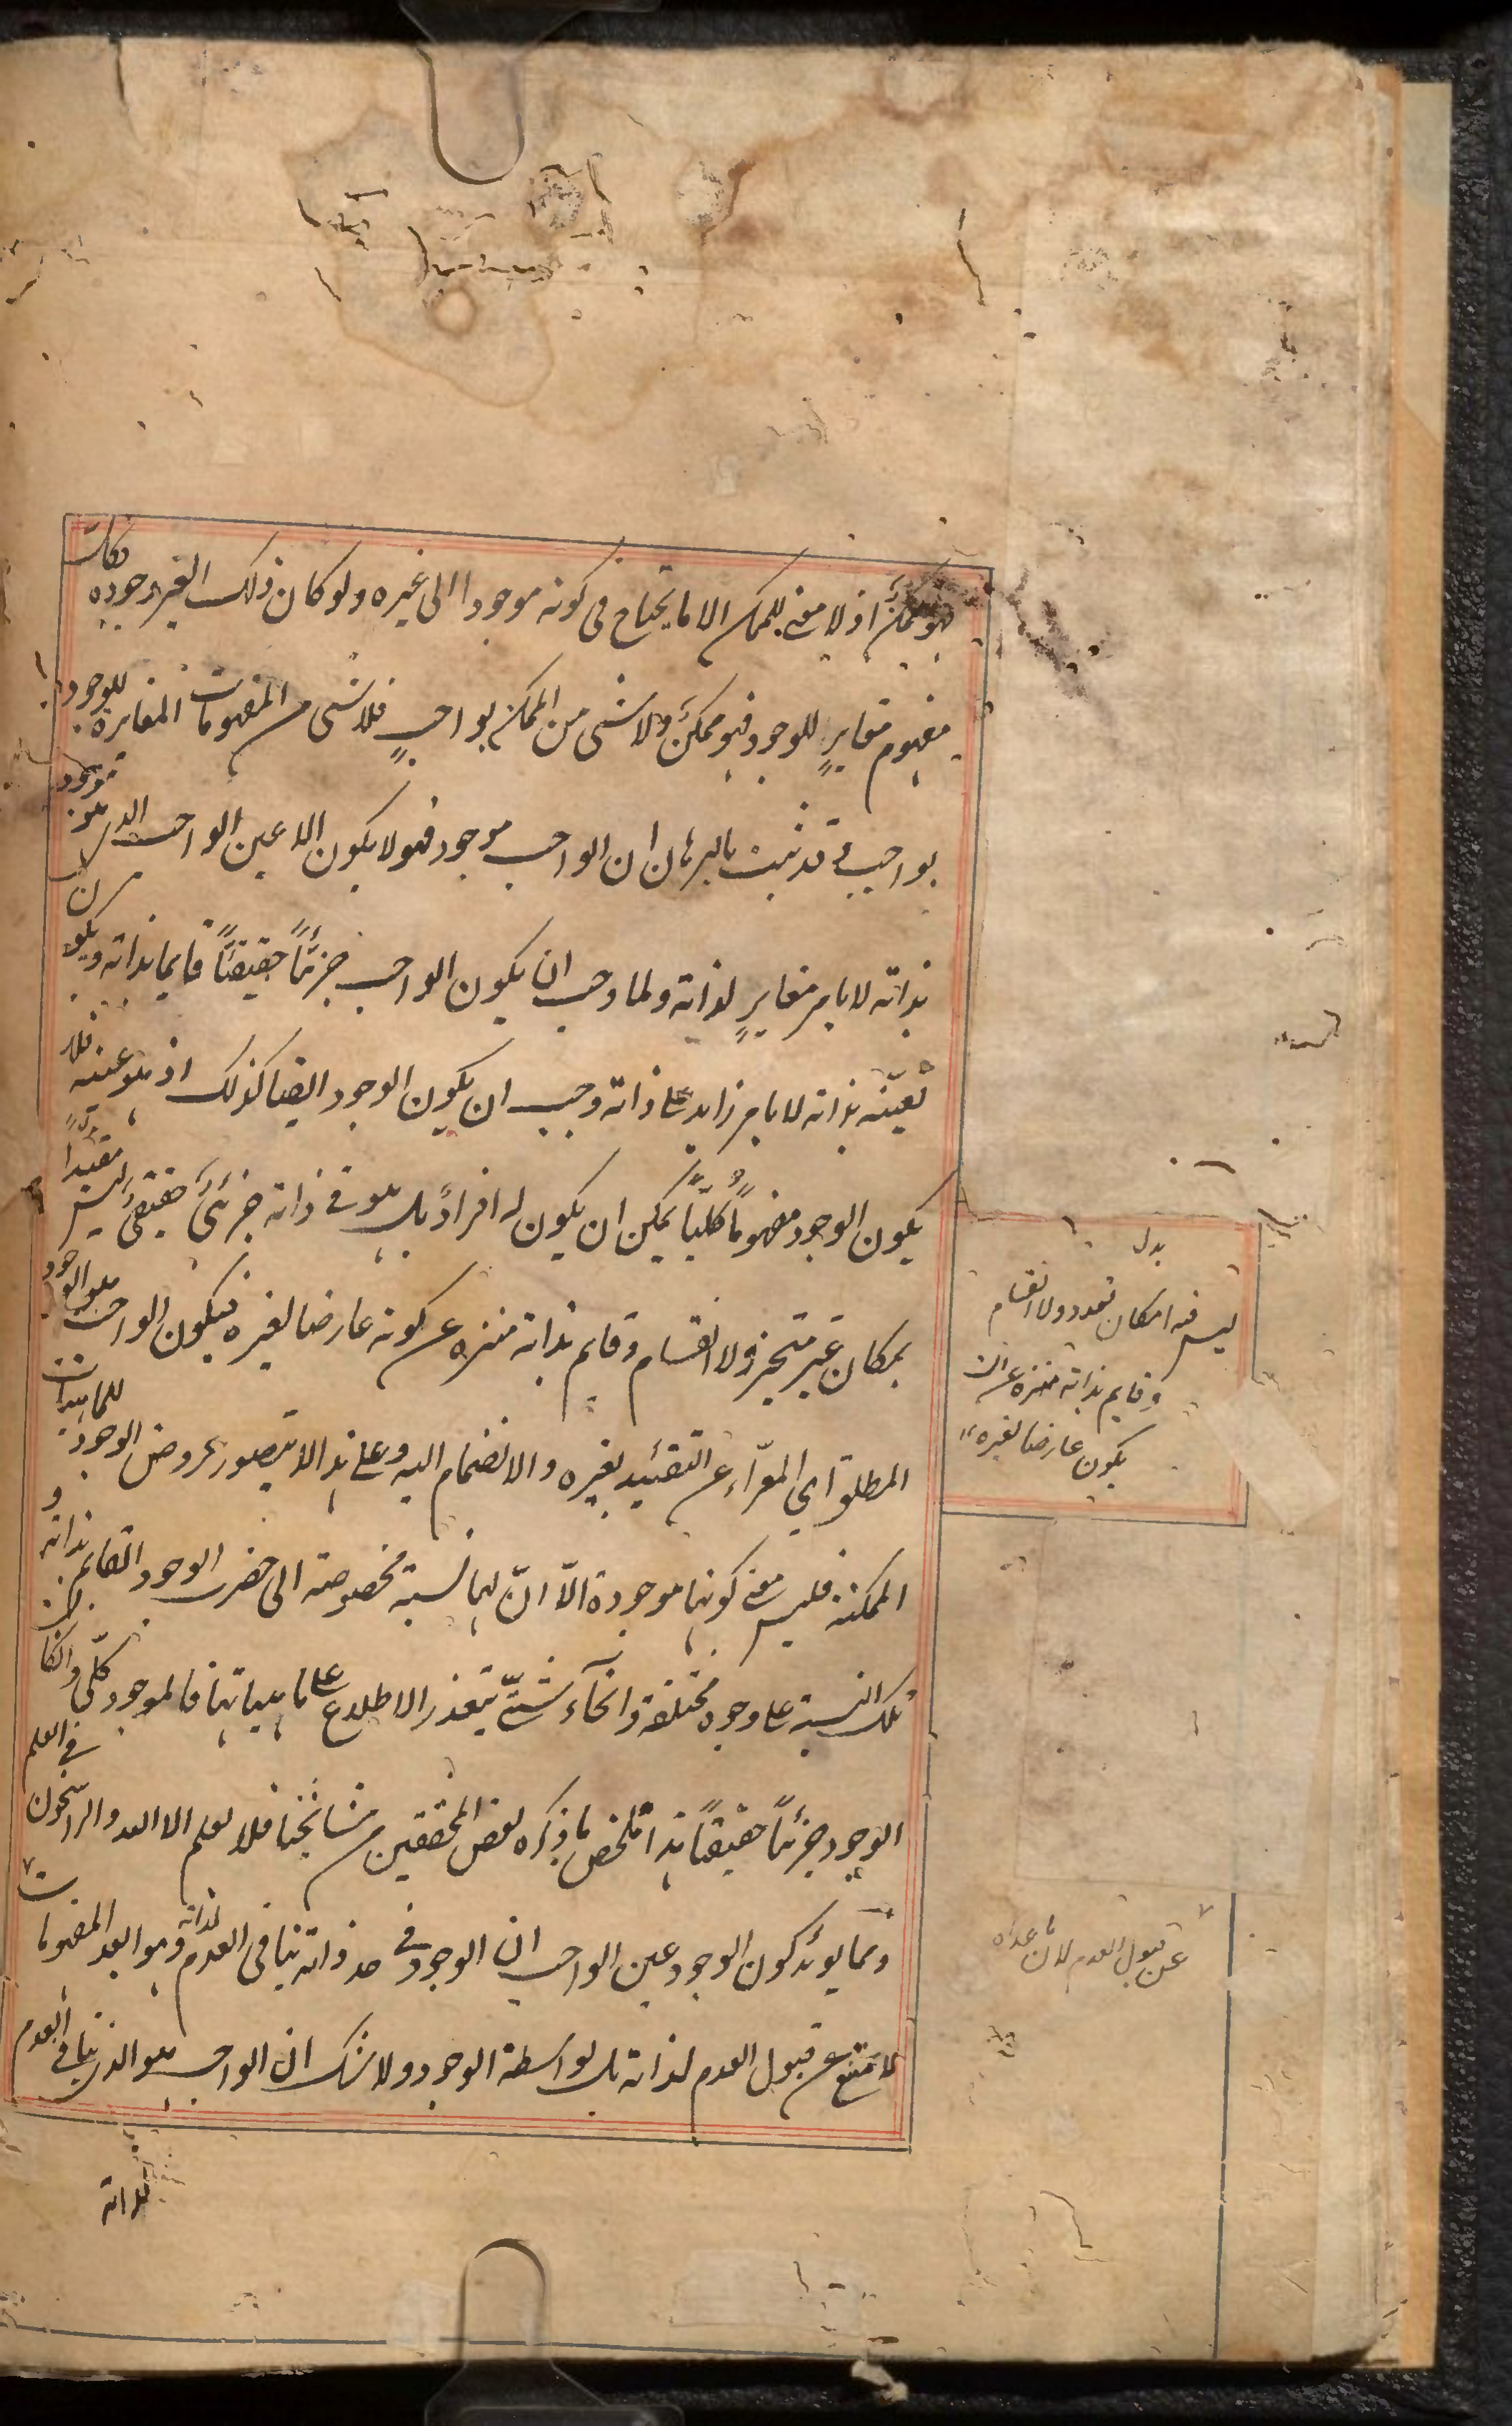 فهو ممكن اذ لا معنى للممكن الا ما يحتاج فى كونه موجودا الى غيره ولو كان ذلك الغير وجوده فكل
مفهوم مغاير للوجود فهو ممكن ولا شىء من الممكن بواجب فلا شىء من المفهومات المغايرة للوجود
بواجب وقد ثبت بالبرهان ان الواجب موجود فهو لا يكون الا عين الواجب الذى هو موجود
بذاته لا بامر مغاير لذاته ولما وجب ان يكون الواجب جزئيا حقيقيا قايما بذاته ويكون
تعينه بذاته لا بامر زايد على ذاته وجب ان يكون الوجود ايضا كذلك اذ هو عينه فلا
يكون الوجود مفهوما كليا يمكن ان يكون له افراد بل هو فى ذاته جزئى حقيقى ليس مقيدا
بمكان غير متحيز ولا انقسام وقايم بذاته منزه عن كونه عارضا لغيره فيكون الواجب هو الوجود
المطلق اى المعراء عن التقييد بغيره والانضمام اليه وعلى هذا لا يتصور عروض الوجود للماهيات
الممكنة فليس معنى كونها موجودة الا ان لها نسبة مخصوصة الى حضرت الوجود القايم بذاته و
تلك النسبة على وجوه مختلفة وانحاء شتى يتعذر الاطلاع على ماهياتها فالموجود كلى وان كان
الوجود جزئيا حقيقيا هذا ملخص ما ذكره بعض المحققين من مشائخنا فلا يعلم الا الله والراسخون فى العلم
ومما يؤيد كون الوجود عين الواجب ان الوجود فى حد ذاته ينافى العدم لذاته وهو ابعد المفهومات
لا يمتنع عن قبول العدم لذاته بل بواسطة الوجود ولا شك ان الواجب هو الذى ينافى العدم
لذاته
بدل
ليس فيه امكان تعدد ولا انقسام
وقايم بذاته منزه عن ان
يكون عارضا لغيره
عن قبول العدم لان ما عداه